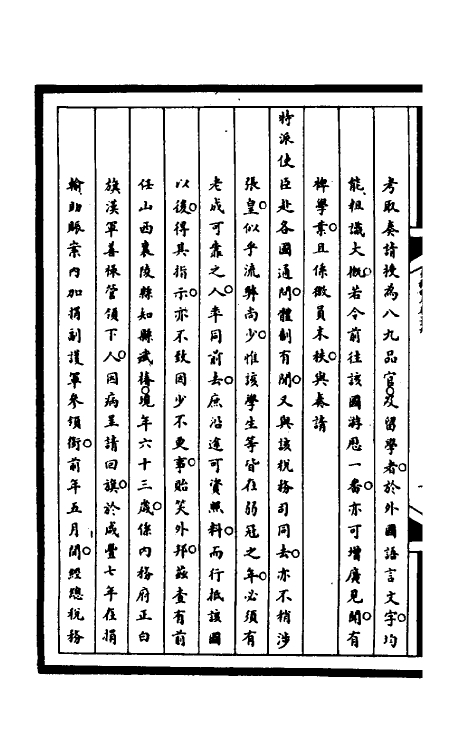 考取奏請授為八九品官及留學者於外國語言文字均
能粗識大概若令前往該國游歷一番亦可增廣見聞有
裨學業且係微員末秩與奏請
特派使臣赴各國通問體制有間又與該稅務司同去亦不稍涉
張皇似乎流弊尚少惟該學生等皆在弱冠之年必須有
老成可靠之人率同前去庶沿途可資照料而行抵該國
以後得其指示亦不致因少不更事貽笑外邦茲查有前
任山西襄陵縣知縣斌椿現年六十三歲係內務府正白
旗漢軍善祿管領下人因病呈請回旗於咸豐七年在捐
輸助賑案內加捐副護軍參領銜前年五月間經總稅務